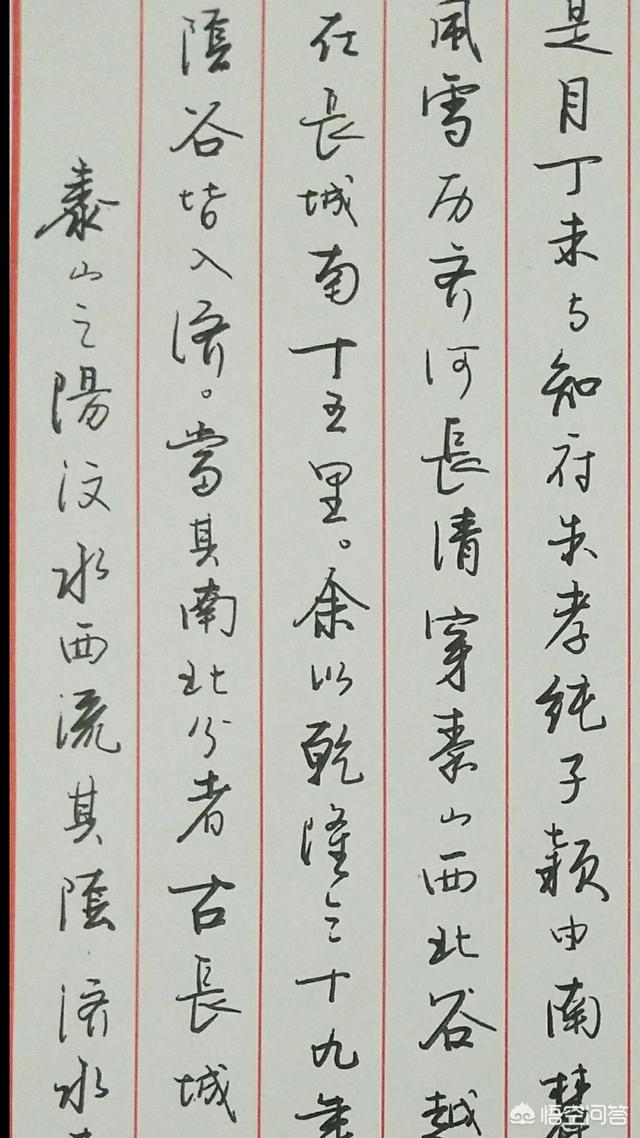 泰山之陽汶水西流其陰济水
陰谷皆入济。當其南北分者古長城
在長城南十五里。余以乾隆三十九年
風雪历齐河長清穿泰山西北谷越
是月丁未与知府朱孝纯子颍由南
悟空问答